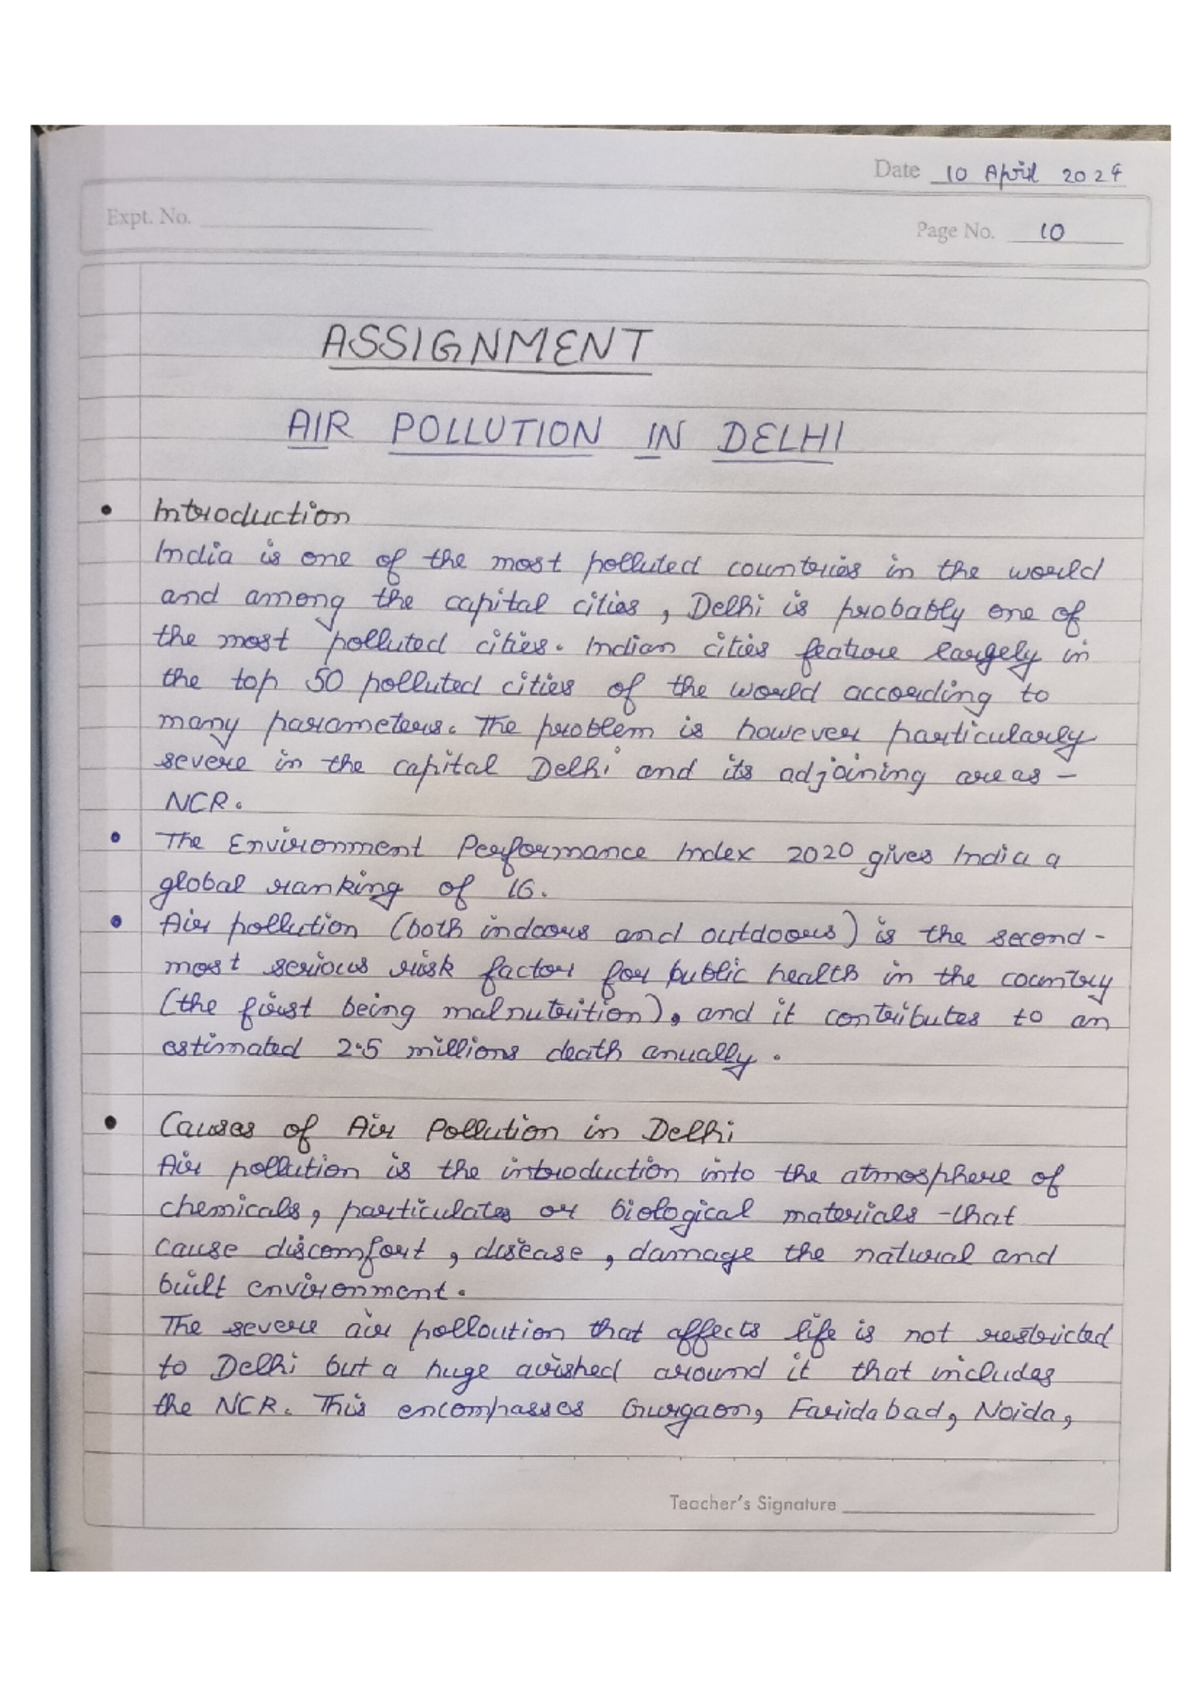 Date 10 April 2024
Expt. No.
Page No. 10
ASSIGNMENT
AIR POLLUTION IN DELHI
• Introduction
India is one of the most polluted countries in the world
and among the capital cities, Delhi is probably one of
the most polluted cities. Indian cities feature largely in
the top 50 polluted cities of the world according to
many parameters. The problem is however particularly
severe in the capital Delhi and its adjoining areas -
NCR.
• The Environment Performance Index 2020 gives India a
global ranking of 16.
• Air pollution (both indoors and outdoors) is the second-
most serious risk factor for public health in the country
(the first being malnutrition), and it contributes to an
estimated 2.5 millions death anually.
• Causes of Air Pollution in Delhi
Air pollution is the introduction into the atmosphere of
chemicals, particulates or biological materials that
cause discomfort, disease, damage the natural and
built environment.
The severe air polloution that affects life is not restricted
to Delhi but a huge airshed around it that includes
the NCR. This encompasses Gurgaon, Faridabad, Noida,
Teacher's Signature